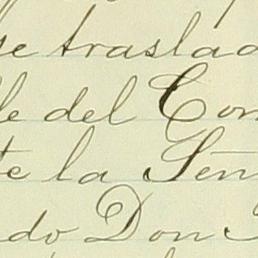 se traslad
le del Con
te la Señ
do Don